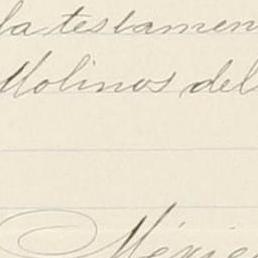 la testamen
Molinos del
Méxic